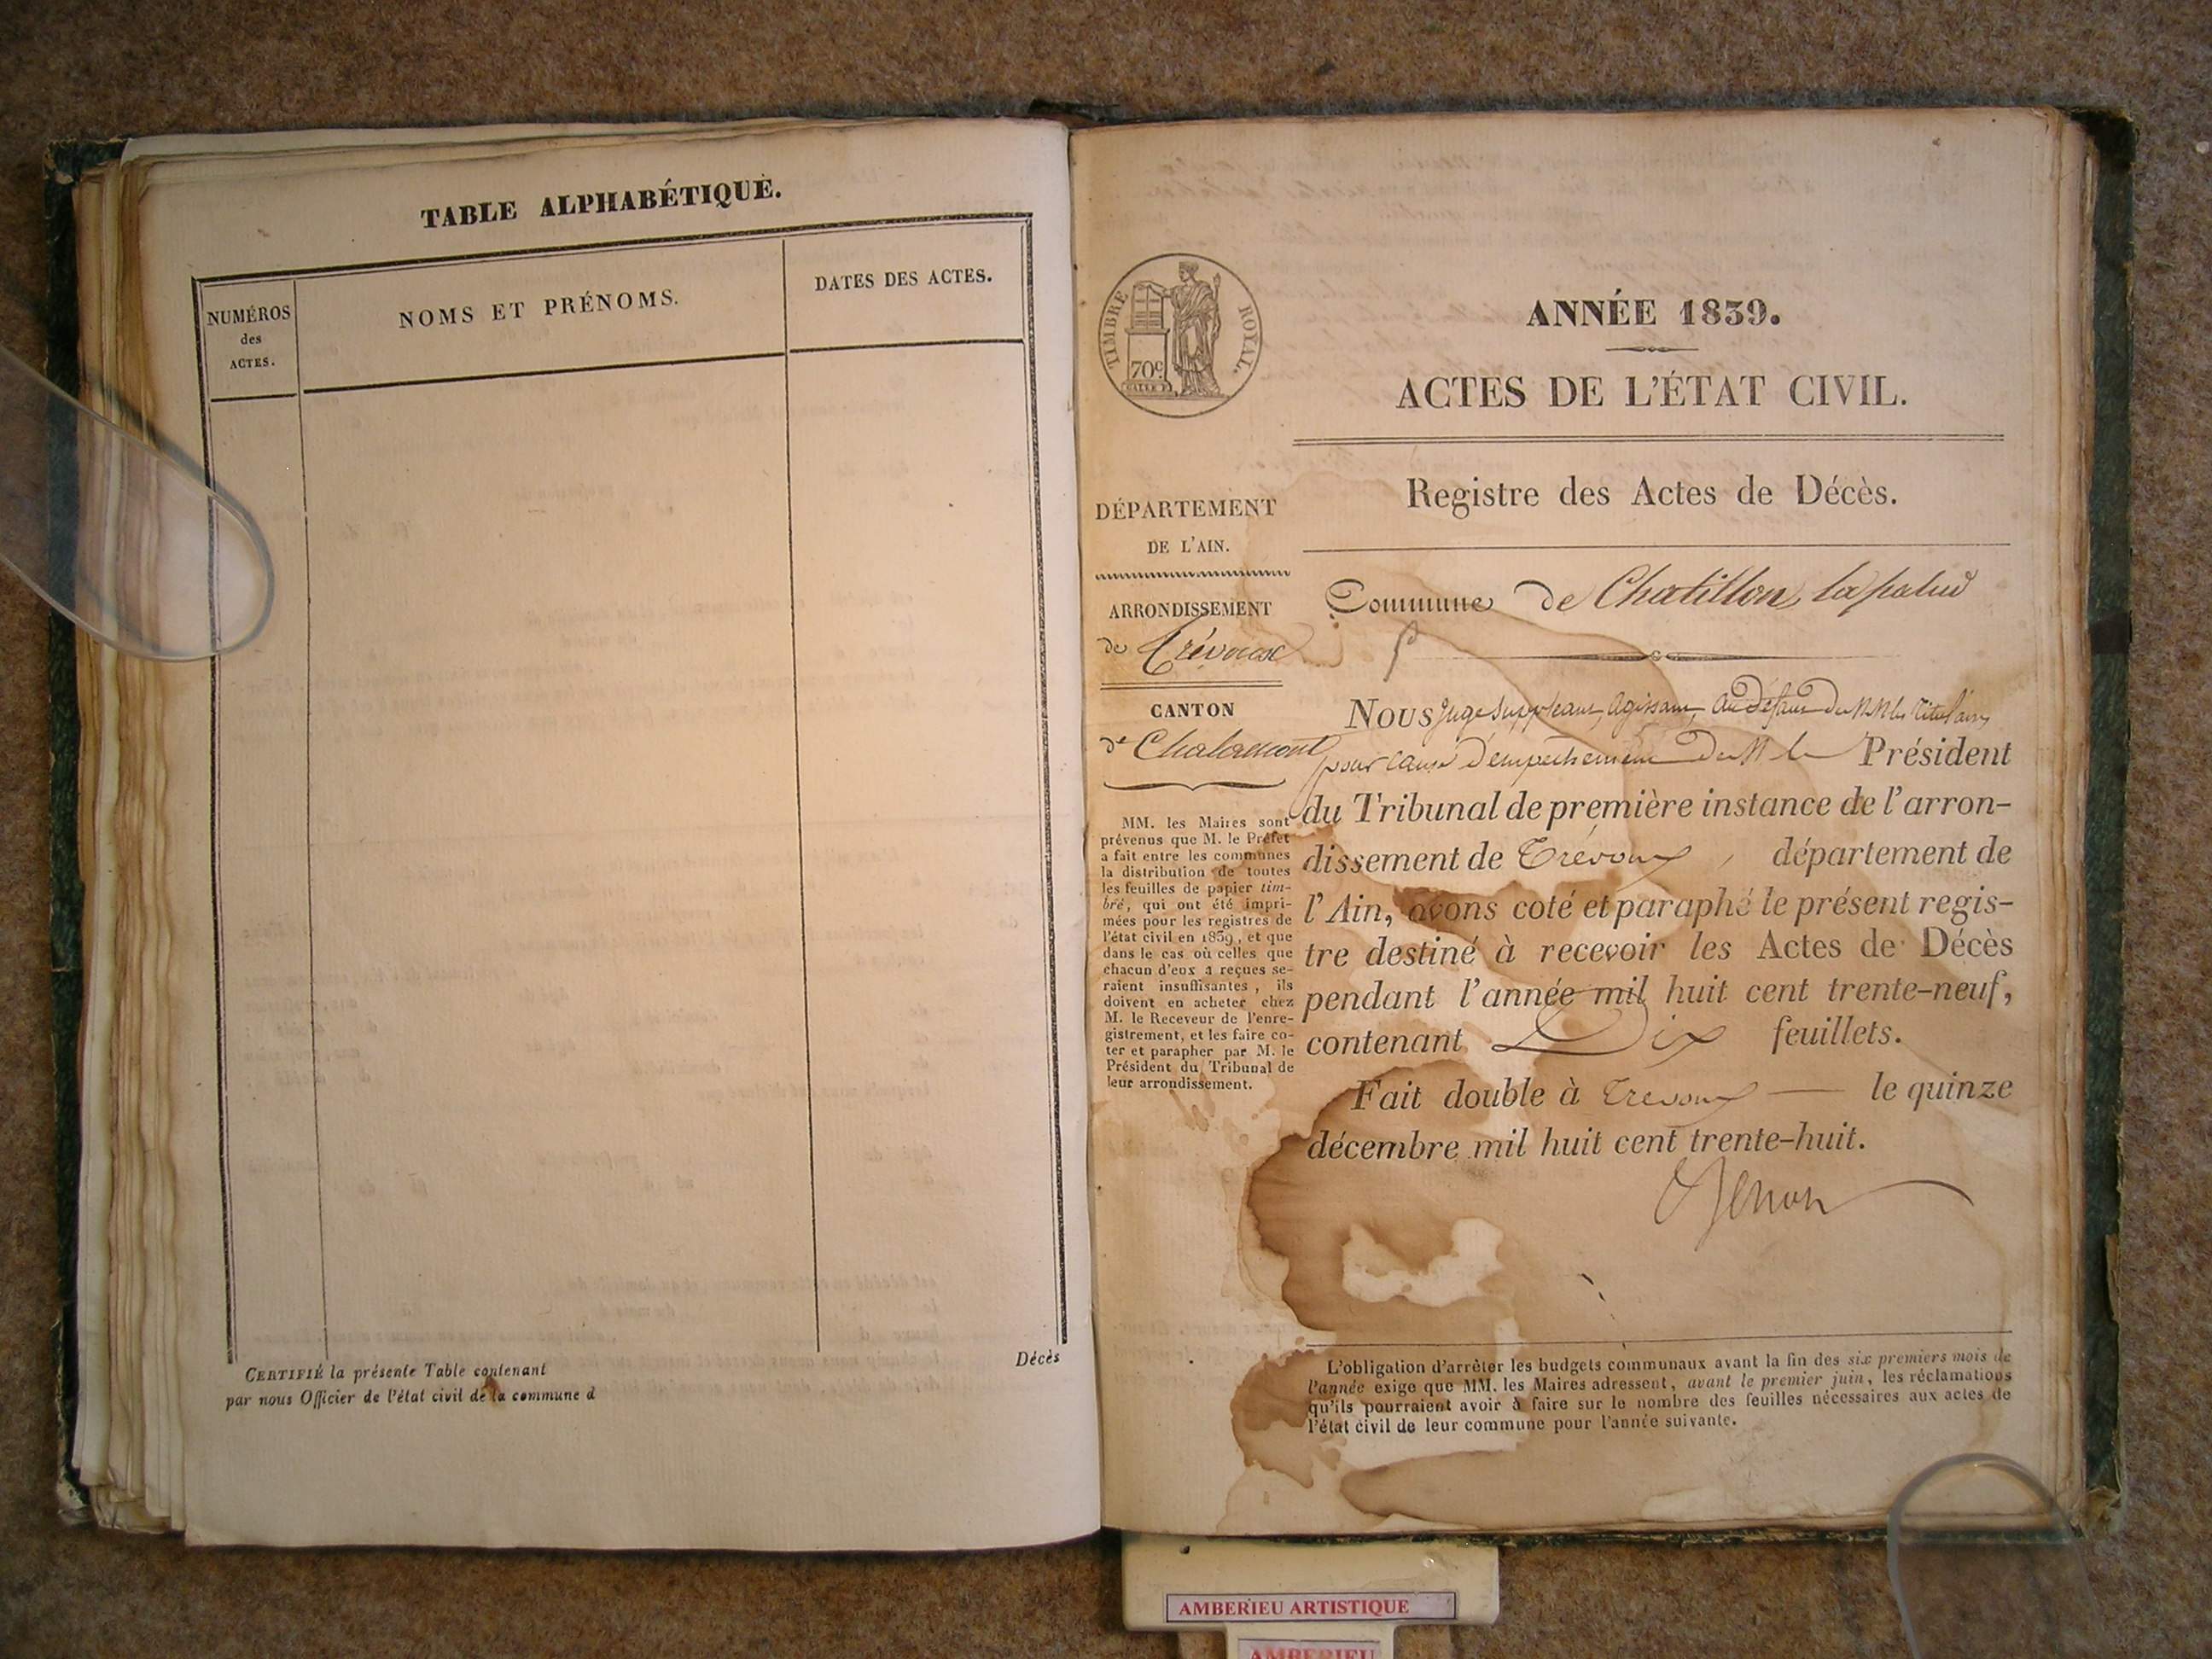 TABLE ALPHABÉTIQUE.
NUMÉROS
des
ACTES.
NOMS ET PRÉNOMS.
DATES DES ACTES.
CERTIFIÉ la présente Table contenant
par nous Officier de l'état civil de la commune d
Décès
TIMBRE ROYAL.
70c
ANNÉE 1839.
ACTES DE L'ÉTAT CIVIL.
Registre des Actes de Décès.
DÉPARTEMENT
DE L'AIN.
ARRONDISSEMENT
de Trévoux
CANTON
de Chalamont
MM. les Maires sont
prévenus que M. le Préfet
a fait entre les communes
la distribution de toutes
les feuilles de papier tim-
bré, qui ont été impri-
mées pour les registres de
l'état civil en 1839, et que
dans le cas où celles que
chacun d'eux a reçues se-
raient insuffisantes, ils
doivent en acheter chez
M. le Receveur de l'enre-
gistrement, et les faire co-
ter et parapher par M. le
Président du Tribunal de
leur arrondissement.
Commune de Chatillon la palud
Nous Juge Suppleant, agissant au défaut de MM les Titulaires
pour cause d'empechement de M le Président
du Tribunal de première instance de l'arron-
dissement de Trévoux, département de
l'Ain, avons coté et paraphé le présent regis-
tre destiné à recevoir les Actes de Décès
pendant l'année mil huit cent trente-neuf,
contenant Dix feuillets.
Fait double à Trevoux le quinze
décembre mil huit cent trente-huit.
L'obligation d'arrêter les budgets communaux avant la fin des six premiers mois de
l'année exige que MM. les Maires adressent, avant le premier juin, les réclamations
qu'ils pourraient avoir à faire sur le nombre des feuilles nécessaires aux actes de
l'état civil de leur commune pour l'année suivante.
AMBERIEU ARTISTIQUE
AMBERIEU